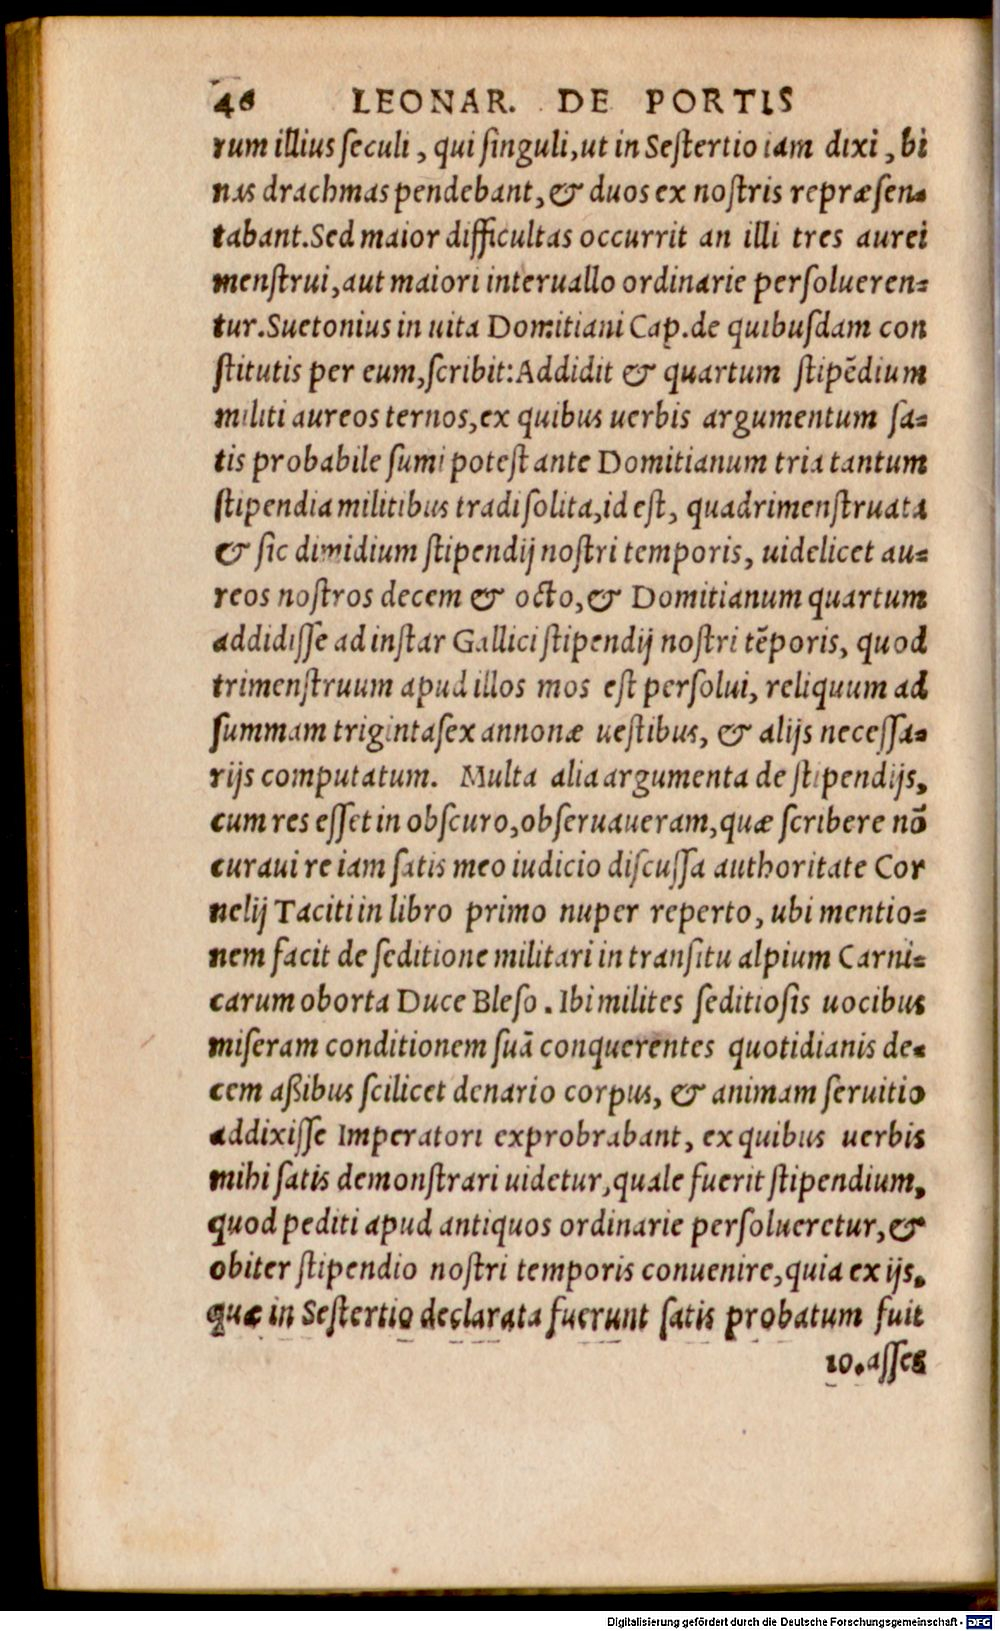 46 LEONAR. DE PORTIS
rum illius ſeculi, qui ſinguli, ut in Seſtertio iam dixi, bi
nas drachmas pendebant, & duos ex noſtris repræſen-
tabant. Sed maior difficultas occurrit an illi tres aurei
menſtrui, aut maiori interuallo ordinarie perſolueren-
tur. Suetonius in uita Domitiani Cap. de quibuſdam con
ſtitutis per eum, ſcribit: Addidit & quartum ſtipẽdium
militi aureos ternos, ex quibus uerbis argumentum ſa-
tis probabile ſumi poteſt ante Domitianum tria tantum
ſtipendia militibus tradi ſolita, id eſt, quadrimenſtruata
& ſic dimidium ſtipendij noſtri temporis, uidelicet au-
reos noſtros decem & octo, & Domitianum quartum
addidiſſe ad inſtar Gallici ſtipendij noſtri tẽporis, quod
trimenſtruum apud illos mos eſt perſolui, reliquum ad
ſummam trigintaſex annonæ ueſtibus, & alijs neceſſa-
rijs computatum. Multa alia argumenta de ſtipendijs,
cum res eſſet in obſcuro, obſeruaueram, quæ ſcribere nõ
curaui re iam ſatis meo iudicio diſcuſſa authoritate Cor
nelij Taciti in libro primo nuper reperto, ubi mentio-
nem facit de ſeditione militari in tranſitu alpium Carni-
carum oborta Duce Bleſo. Ibi milites ſeditioſis uocibus
miſeram conditionem ſuã conquerentes quotidianis de-
cem aßibus ſcilicet denario corpus, & animam ſeruitio
addixiſſe Imperatori exprobrabant, ex quibus uerbis
mihi ſatis demonſtrari uidetur, quale fuerit ſtipendium,
quod pediti apud antiquos ordinarie perſolueretur, &
obiter ſtipendio noſtri temporis conuenire, quia ex ijs,
quæ in Seſtertio declarata fuerunt ſatis probatum fuit
10. aſſes
Digitalisierung gefördert durch die Deutsche Forschungsgemeinschaft - DFG